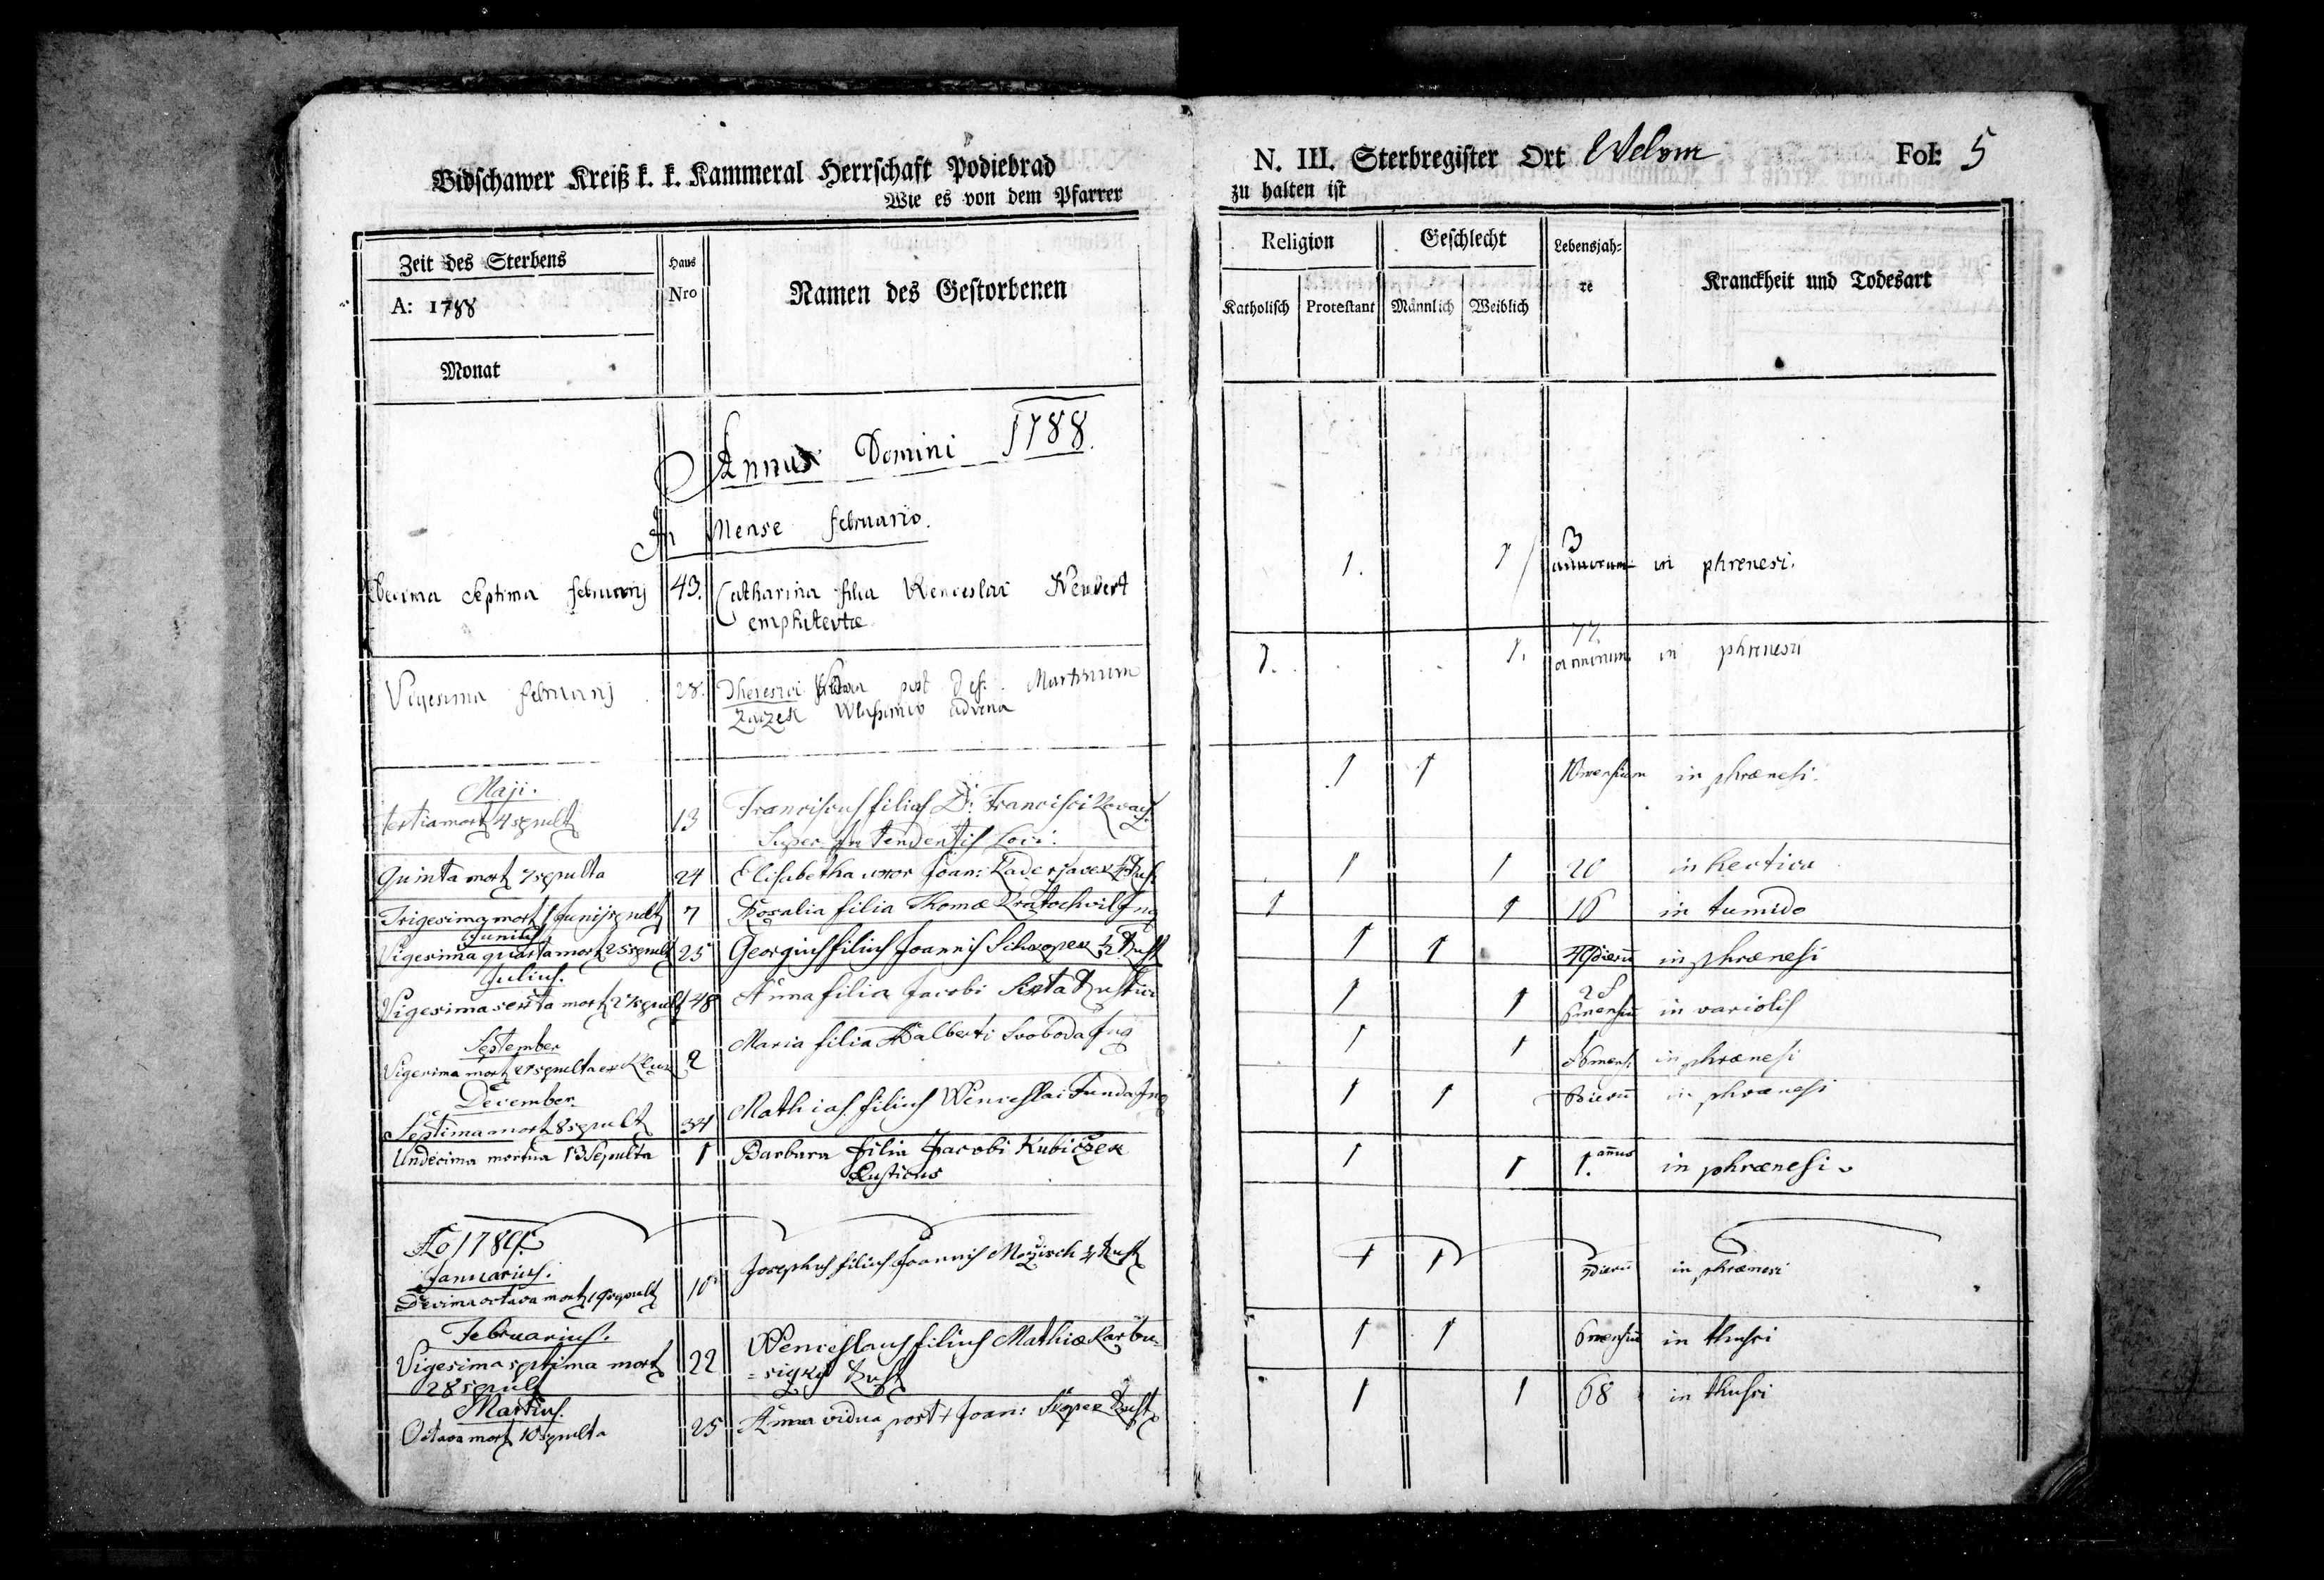 Bidschawer Kreiß k. k. Kammeral Herrschaft Podiebrad
Wie es von dem Pfarrer
Zeit des Sterbens
A: 1788
Monat
Haus
Nro
Namen des Gestorbenen
Annus Domini 1788.
In Mense februario.
Decima Septima februarij 43. Catharina filia Wenceslai Neubert
emphiteutæ
Vigesima februarij 28. Theresia post def. Martinum
Zaczek advena
Maji.
tertia mort 4 sepult 13 Franciscus filius D. Francisci
Super In tendentis loci.
Quinta mort 7 sepulta 24 Elisabetha uxor Joan:
Trigesima mort 1 Junij sepult 7 Rosalia filia Thomæ Kratochvil Inq
Junius
Vigesima quarta mort 25 sepult 25 Georgius filius Joannis
Julius.
Vigesima sexta mort 27 sepult 48 Anna filia Jacobi Rustici
September
Vigesima mort 21 sepulta ex 2 Maria filia Adalberti Svoboda Inq
December.
Septima mort 8 sepult 34 Mathias filius Wenceslai Funda Inq
Undecima mortua 13 Sepulta 1 Barbara filia Jacobi Kubiczek
Rusticus
Ao 1789.
Januarius.
Decima octava mort 19 sepult 10 Josephus filius Joannis
Februarius.
Vigesima septima mort 22 Wenceslaus filius Mathiæ
28 sepult
Martius.
Octava mort 10 sepulta 25 Anna vidua post + Joan:
N. III. Sterbregister Ort Welom Fol: 5
zu halten ist
Religion
Katholisch
Protestant
Geschlecht
Männlich
Weiblich
Lebensjah-
re
Kranckheit und Todesart
1. 1 3 in phrenesi.
1. 1. 77. annorum in phrenesi
1 1 10 mensium in phrænesi.
1 1 20 in hectica
1 1 16 in tumido
1 1 dierum in phrænesi
1 1 6 mensium in variolis
1 1 mens. in phrænesi
1 1 dierum in phrænesi
1 1 1. annus in phrænesi
1 1 dierum in phrænesi
1 1 6 mensium in thusri
1 1 68 in thusri